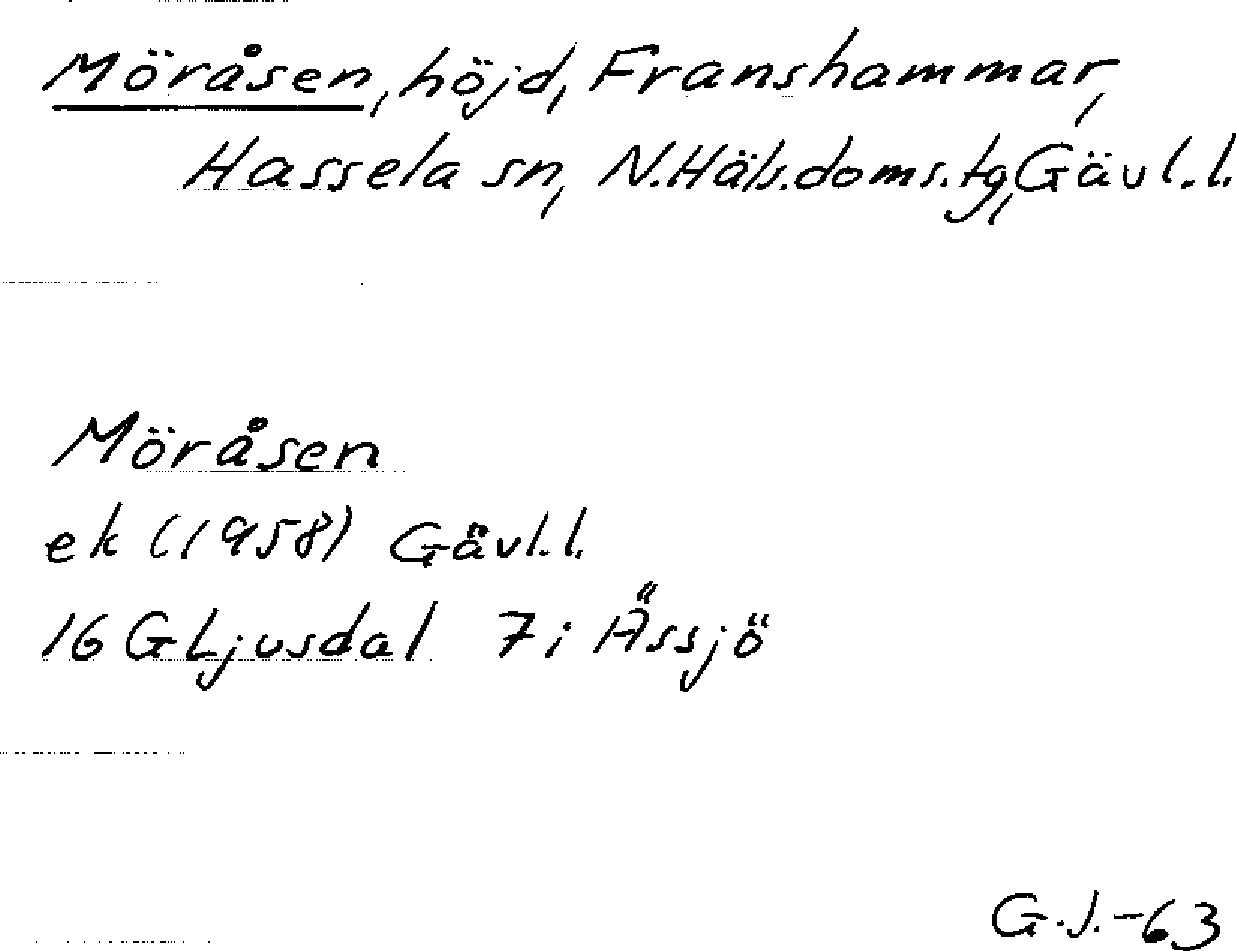 Möråsen, höjd, Franshammar,
Hassela sn, N.Häls.doms.tg, Gävl.l.
Möråsen
ek (1958) Gävl.l.
16 G Ljusdal 7i Ässjö
G.J.-63